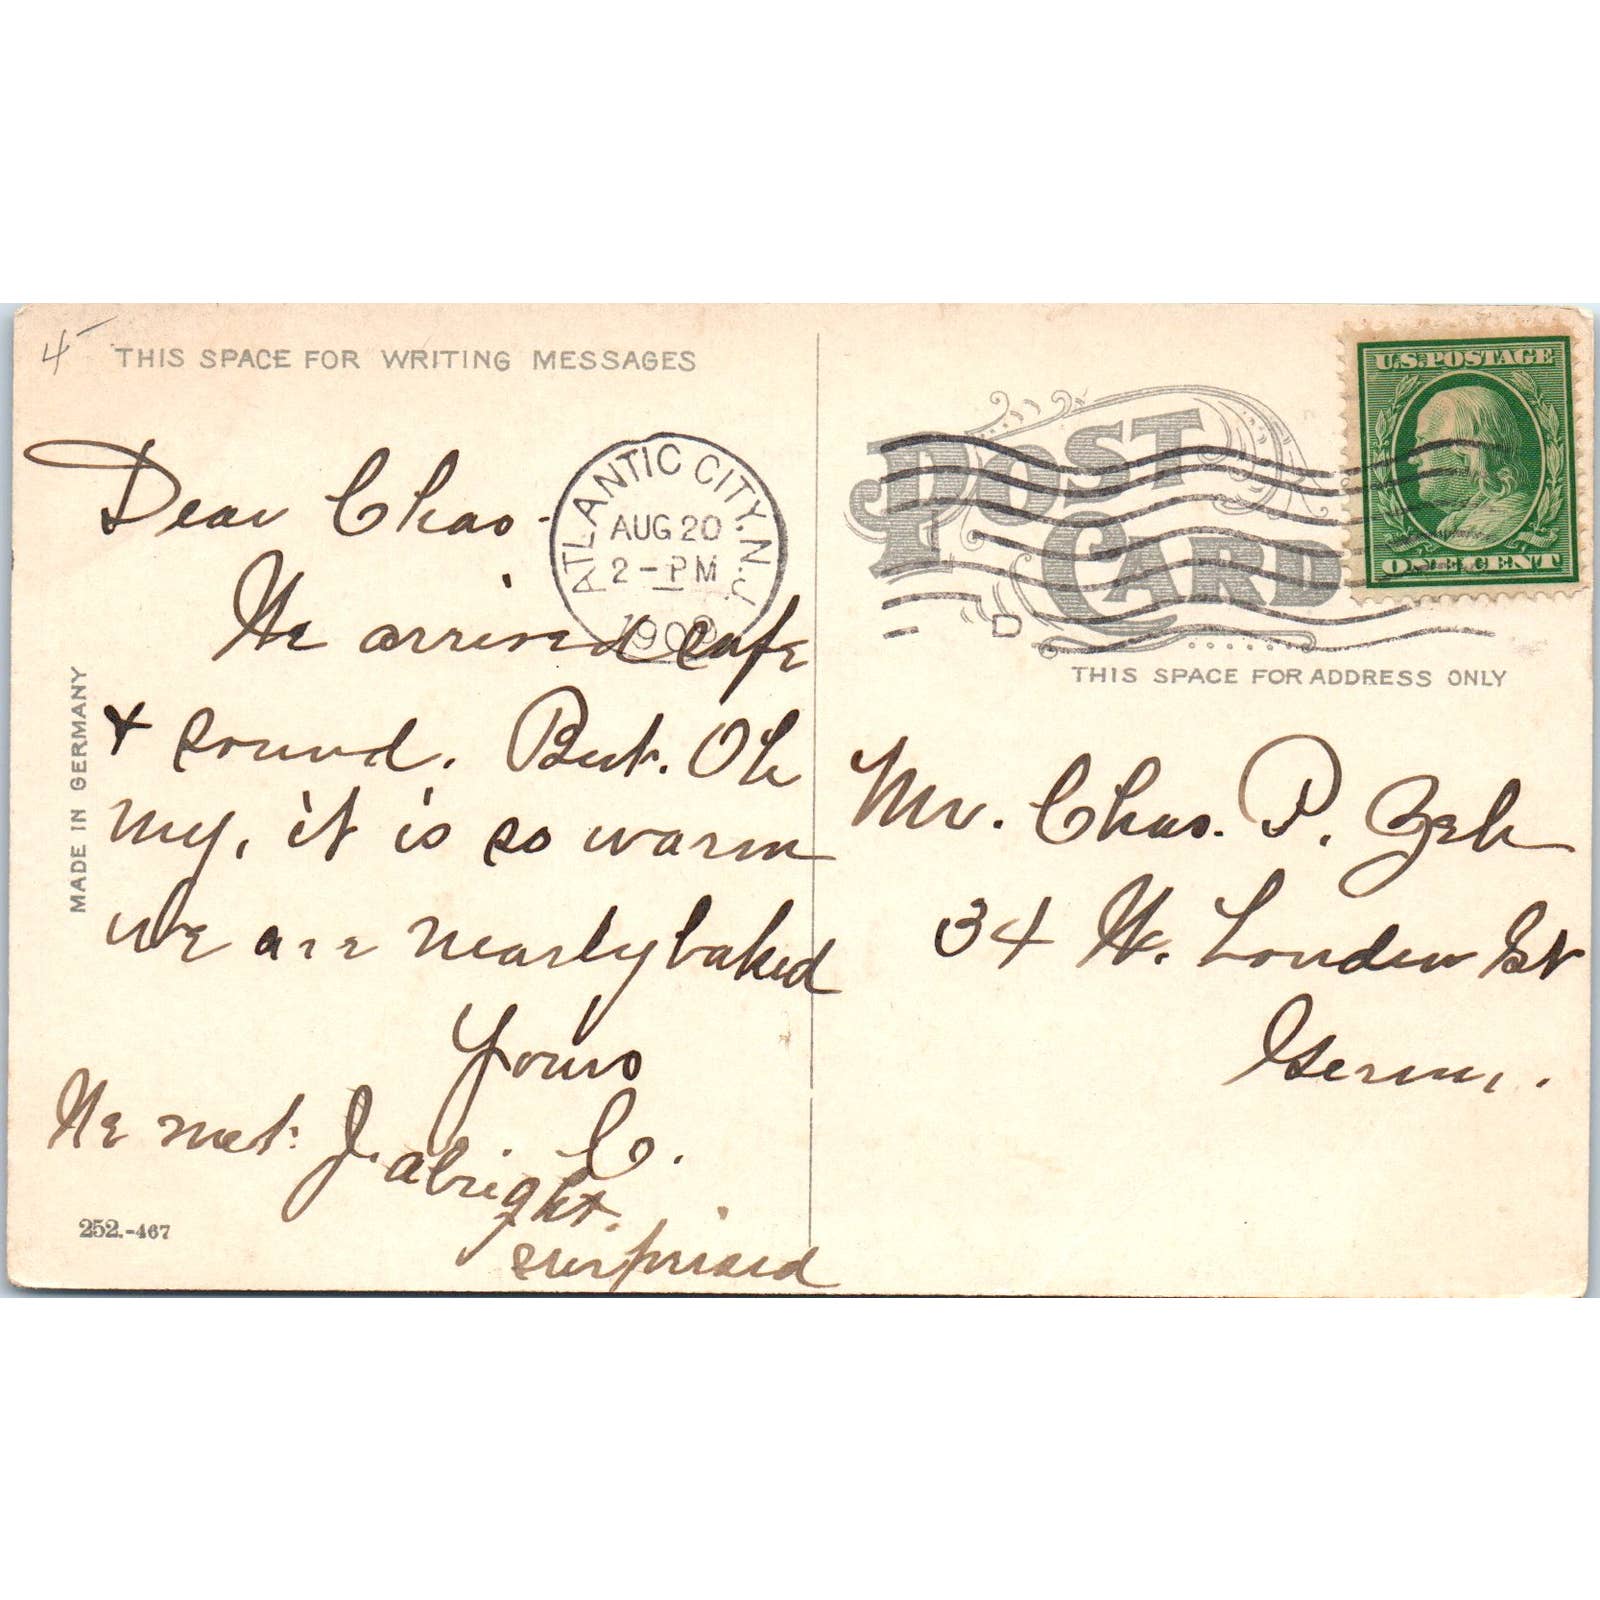 4-
THIS SPACE FOR WRITING MESSAGES
U.S. POSTAGE
ONE CENT
POST
CARD
THIS SPACE FOR ADDRESS ONLY
ATLANTIC CITY, N.J.
AUG 20
2-PM
1909
MADE IN GERMANY
Dear Chas-
We arrived safe
+ sound. But. Oh
my, it is so warm
we are nearly baked
Yours
C.
We met J. albright
surprised
252.-467
Mr. Chas. P. Zeh
34 W. Louden St
Germ.